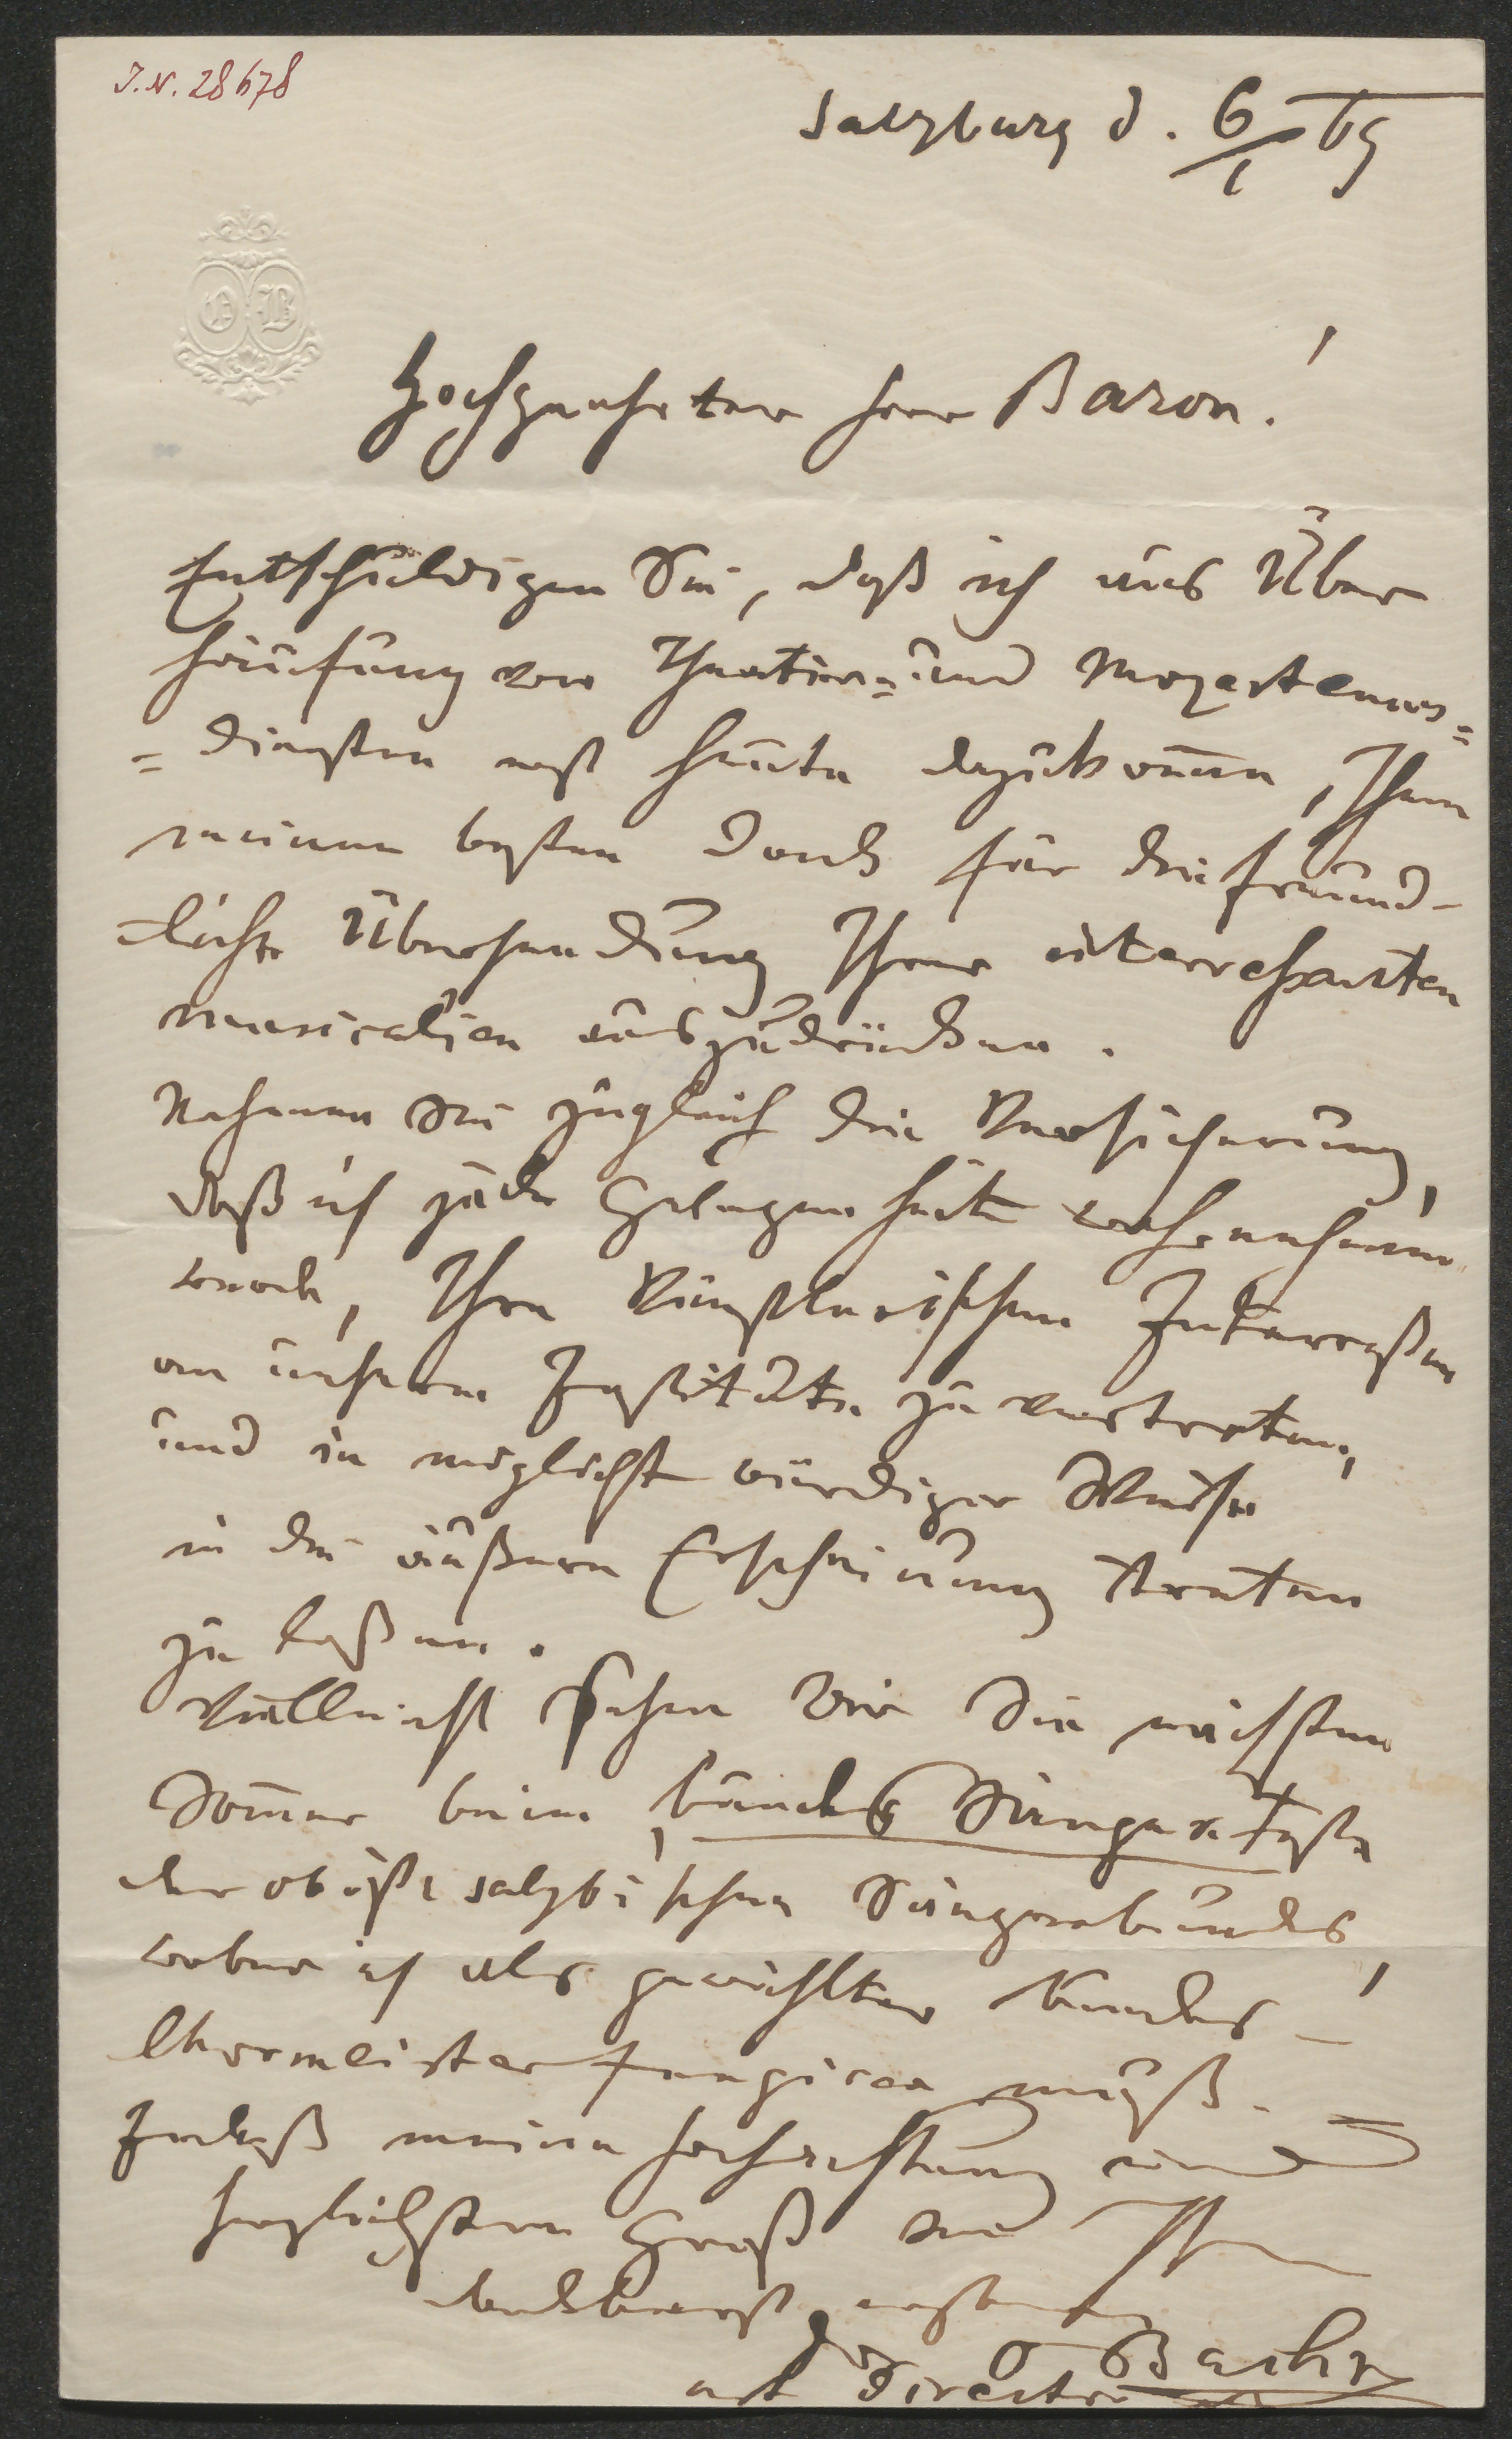 J.N. 28678
Salzburg d. 6/1 69
O B
Hochgeehrter Herr Baron!
Entschuldigen Sie, daß ich aus Über
häufung von Theater= und Mozarteums=
=diensten erst heute dazukomme, Ihnen
meinen besten Dank für die freund-
liche Übersendung Ihrer interressanten
Musicalien auszudrücken.
Nehmen Sie zugleich die Versicherung,
daß ich jede Gelegenheit wahrnehmen
werde, Ihre künstlerischen Interressen
an unserm Institute zu vertreten,
und in möglichst würdiger Weise
in die äußere Erscheinung treten
zu laßen.
Vielleicht sehen wir Sie nächsten
Sommer beim Bundes Sängerfeste
der oböstr salzbischen Sängerbundes,
wobei ich als gewählter Bundes-
Chormeister fungiren muß. –
Indeß meine Hochachtung und
herzlichsten Gruß von Ihrem
dankbarst
Dr O Bach
art Director